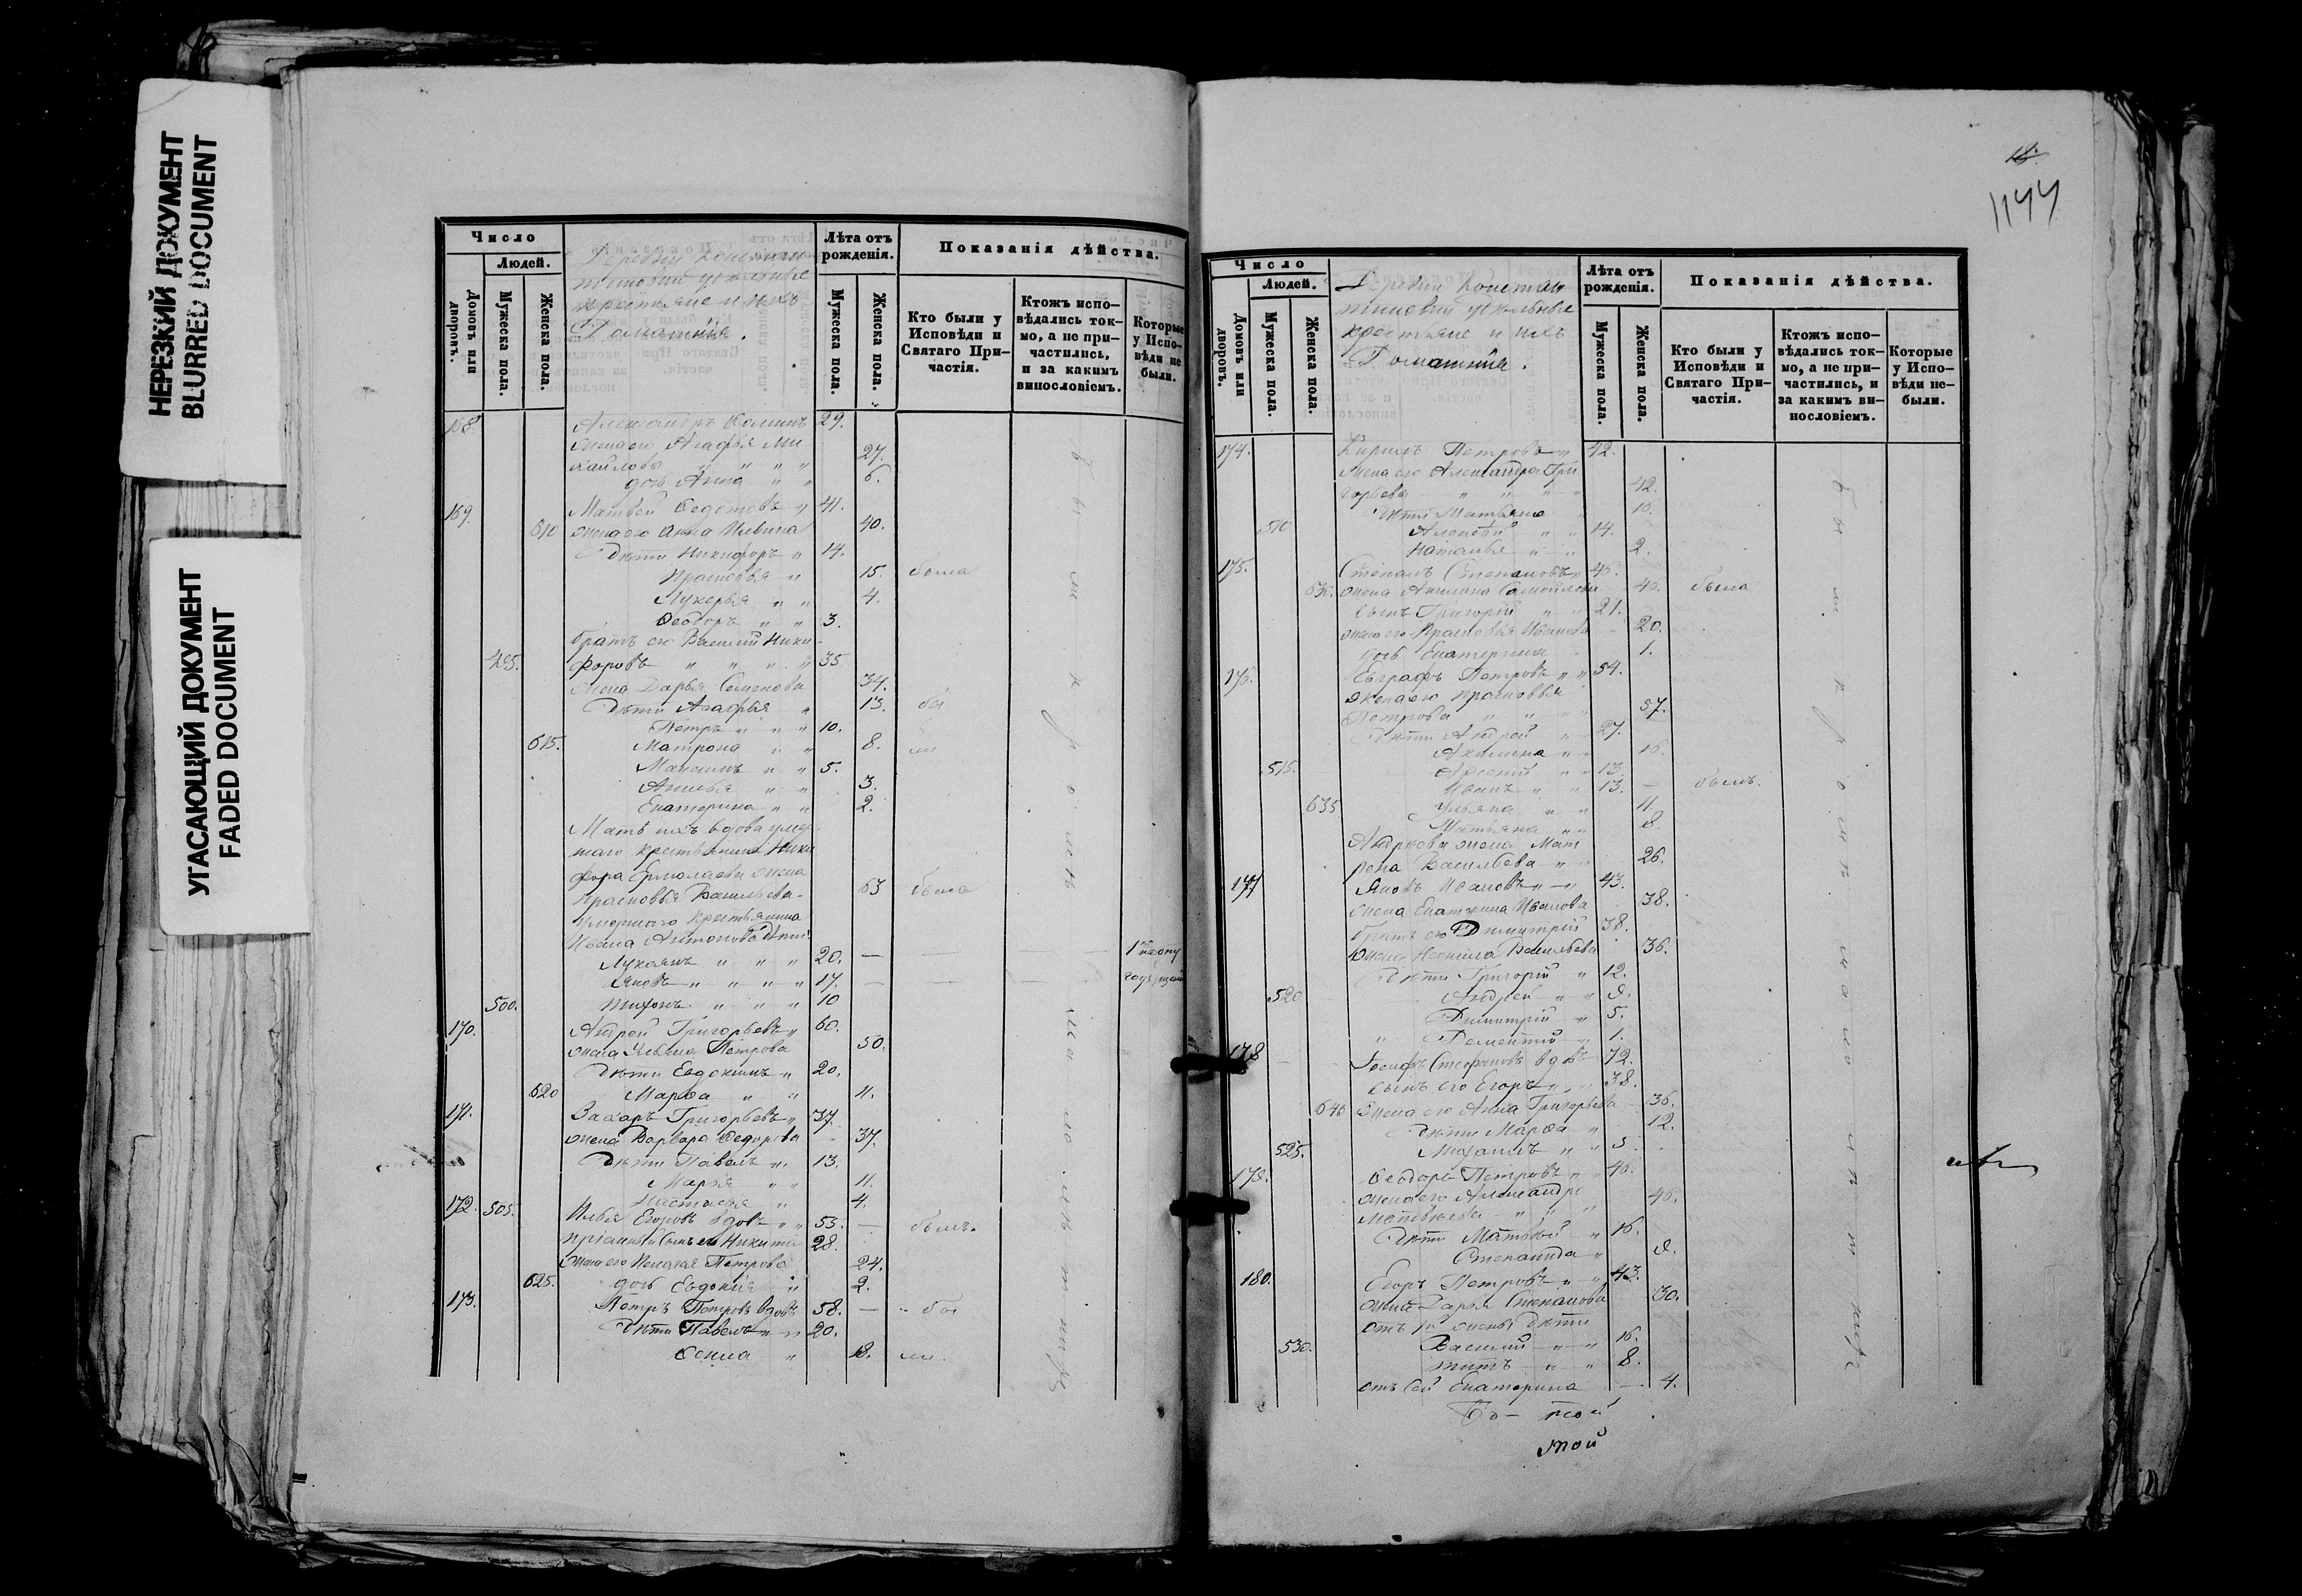 НЕРЕЗКИЙ ДОКУМЕНТ
BLURRED DOCUMENT
УГАСАЮЩИЙ ДОКУМЕНТ
FADED DOCUMENT
Число
Людей.
Домовъ или дворовъ.
Мужеска пола.
Женска пола.
Деревни Констан
тиновки удѣльные
крестьяне и ихъ
Домашнія.
Лѣта отъ рожденія.
Мужеска пола.
Женска пола.
Показанія дѣйства.
Кто были у Исповѣди и Святаго Причастія.
Ктожъ исповѣдались токмо, а не причастились, и за какимъ винословіемъ.
Которые у Исповѣди не были.
168. Александръ Фоминъ 29.
жена его Агафья Ми
хайлова " " " " 27.
дочь Анна " " 6.
169. Матвей Федотовъ " 41.
610 жена его Анна Ильина 40.
Дѣти Никифоръ " 14.
Прасковья " 15. была
Лукерья " " 4.
Феодоръ " " 3.
братъ его Василий Ники-
495. форовъ " " " " 35.
жена Дарья Семенова 34.
Дѣти Агафья " 13. бы
Петръ " " " 10.
615. Матрона " " 8. ли
Максимъ " " 5.
Акилья " " 3.
Екатерина " " 2.
Мать ихъ вдова умер
шаго крестьянина Ники
фора Ермолаева жена
Прасковья Васильева- 63 была
Умершаго крестьянина
Ивана Антонова Дѣти
Лукаянъ " " " 20. — —
Яковъ " " " " 17. — —
500. Тихонъ " " " 10
170. Андрей Григорьевъ " 60.
жена Ульяна Петрова 50.
Дѣти Евдокимъ " 20.
620 Марфа " " 11.
171. Захаръ Григорьевъ " 37.
жена Варвара Федорова 37.
Дѣти Павелъ " 13.
Марья " " 11.
Настасья " 4.
172. 505. Илья Егоровъ вдовъ " " 53. — былъ.
пріемный Сынъ его Никита 28.
жена его Пелагая Петрова 24.
625. дочь Евдокия " 2.
173. Петръ Петровъ вдовъ 58. — " бы
Дѣти Павелъ " " 20.
Фекла " 18. ли.
18.
1144
Число
Людей.
Домовъ или дворовъ.
Мужеска пола.
Женска пола.
Деревни Констан
тиновки удѣльные
крестьяне и ихъ
Домашнія.
Лѣта отъ рожденія.
Мужеска пола.
Женска пола.
Показанія дѣйства.
Кто были у Исповѣди и Святаго Причастія.
Ктожъ исповѣдались токмо, а не причастились, и за какимъ винословіемъ.
Которые у Исповѣди небыли.
174. Кирилъ Петровъ " 42.
жена его Александра Гри
горьева " " " " 42.
Дѣти Татьяна 16.
510 Алексѣй " " 14.
Наталья " " 2.
175. Степанъ Степановъ " 46.
630. жена Акилина Самойлова 40. была
сынъ Григорій " " 21.
жена его Прасковья Иванова 20.
дочь Екатерина 1.
176. Евграфъ Петровъ " " 54.
жена его Прасковья
Петрова " " " 57.
Дѣти Андрей " 27.
Акилина " " 16.
515. Арсений " " 13.
Иванъ " " 13. — былъ.
635 Ульяна " " 11.
Татьяна " " 8.
Андреева жена Мат
рона Васильева " " 26.
177 Яковъ Ивановъ " — " 43.
жена Екатерина Иванова 38.
братъ его Димитрій 38.
жена Неонила Васильева 36.
Дѣти Григорій " 12.
520 Андрей " " 9.
Димитрій " 5.
" Дементій " 1.
178 Іосифъ Стефановъ вдовъ 72.
сынъ его Егоръ " " " 38.
640 жена его Анна Григорьева 36.
Дѣти Марфа " 12.
525. Михаилъ " " 5
179. Феодоръ Петровъ " " 46.
жена его Александра
Матвѣева " " " 46.
Дѣти Матвѣй " 16.
Степанида " 9.
180. Егоръ Петровъ " " 43.
жена Дарья Степанова 30.
отъ 1й жены Дѣти
530. Василий " " 16.
Титъ " " 8.
отъ сей Екатерина — 4.